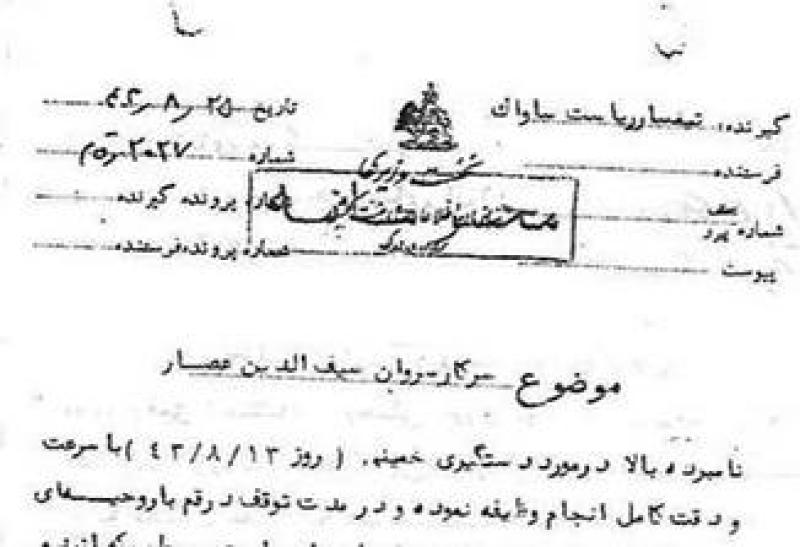 گیرنده: تیمسار ریاست ساواک
تاریخ ۲۵ر۸ر۴۳
فرستنده
شماره ۲۰۲۷
نخست وزیری
شماره پرونده گیرنده
سازمان اطلاعات و امنیت کشور
شماره پیرو
پیوست
شماره پرونده فرستنده
موضوع سرکار سروان سیف الدین عصار
نامبرده بالا در مورد دستگیری خمینی (روز ۴۳/۸/۱۳) با سرعت
و دقت کامل انجام وظیفه نموده و در مدت توقف در قم با روحیه‌ای